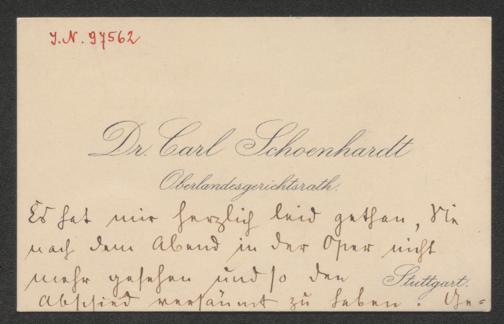 J.N. 97562
Dr. Carl Schoenhardt
Oberlandesgerichtsrath.
Es hat mir herzlich leid gethan, Sie
nach dem Abend in der Oper nicht
mehr gesehen und so den
Stuttgart.
Abschied versäumt zu haben. Ge-